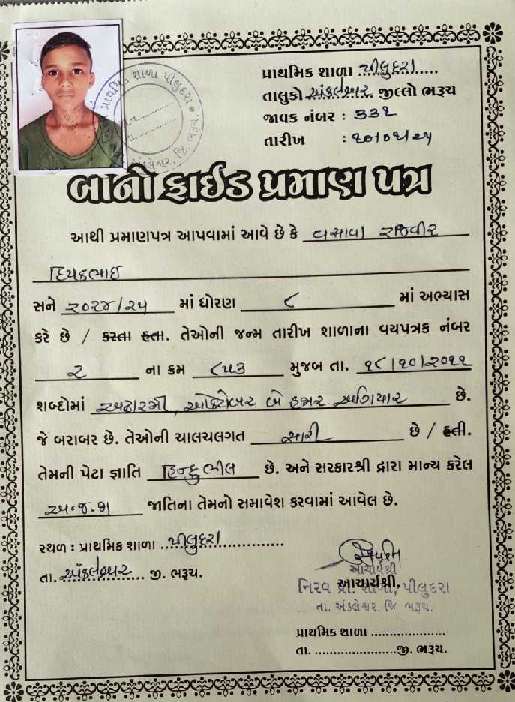 પ્રાથમિક શાળા પીલુદરા
તાલુકો અંકલેશ્વર જીલ્લો ભરૂચ
જાવક નંબર : ૩૩૨
તારીખ :
બાનોફાઈડ પ્રમાણ પત્ર
આથી પ્રમાણપત્ર આપવામાં આવે છે કે વસાવા રાજવીર
દિપકભાઈ
સને ૨૦૨૪/૨૫ માં ધોરણ ૮ માં અભ્યાસ
કરે છે / કરતા હતા. તેઓની જન્મ તારીખ શાળાના વયપત્રક નંબર
૨ ના ક્રમ ૮૫૩ મુજબ તા. ૧૮/૧૦/૨૦૧૧
શબ્દોમાં અઢારમી ઓક્ટોબર બે હજાર અગિયાર છે.
જે બરાબર છે. તેઓની ચાલચલગત સારી છે / હતી.
તેમની પેટા જ્ઞાતિ હિન્દુ ભીલ છે. અને સરકારશ્રી દ્રારા માન્ય કરેલ
અ.જ.જા જાતિના તેમનો સમાવેશ કરવામાં આવેલ છે.
સ્થળ : પ્રાથમિક શાળા પીલુદરા
તા. અંકલેશ્વર જી. ભરૂચ.
આચાર્યશ્રી
આચાર્યશ્રી, પીલુદરા
તા. અંકલેશ્વર જિ ભરૂચ.
પ્રાથમિક શાળા ....................
તા. ....................જી. ભરૂચ.